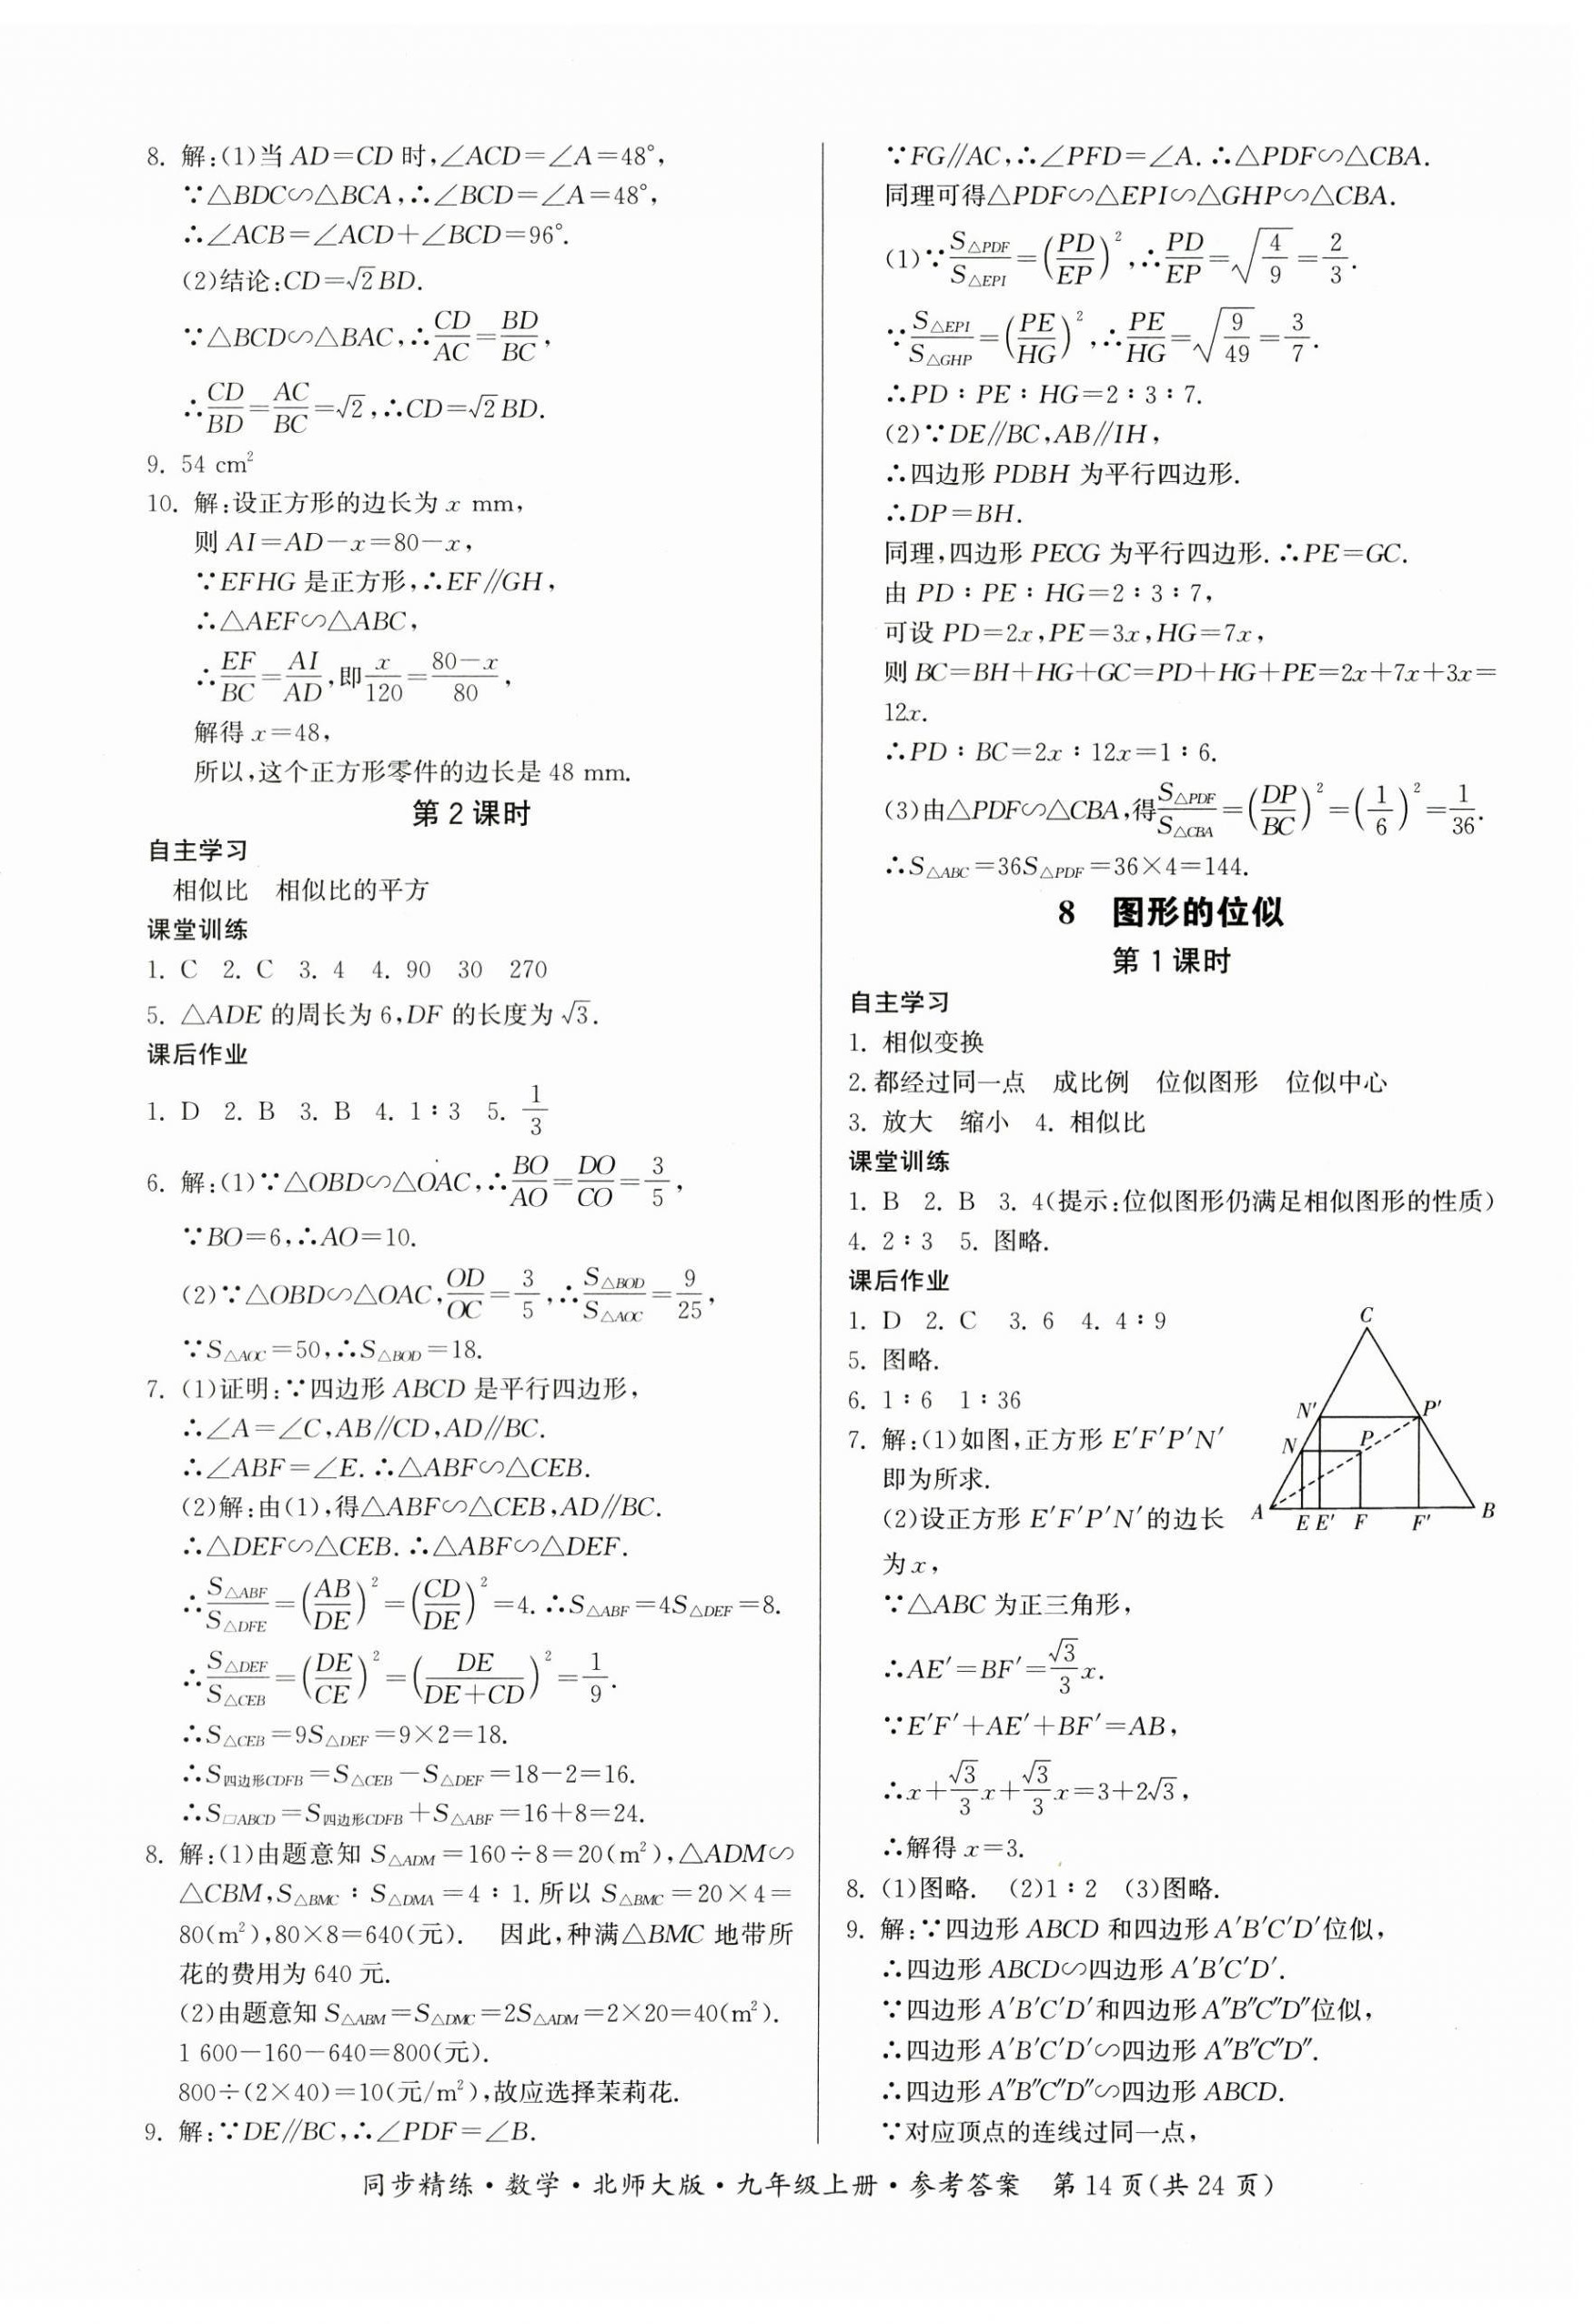 8. 解:(1)当 AD=CD 时,∠ACD=∠A=48°,
∵△BDC∽△BCA,∴∠BCD=∠A=48°,
∴∠ACB=∠ACD+∠BCD=96°.
(2)结论:CD=√2BD.
∵△BCD∽△BAC,∴CD/AC=BD/BC,
∴CD/BD=AC/BC=√2,∴CD=√2BD.
9. 54 cm²
10. 解:设正方形的边长为 x mm,
则 AI=AD-x=80-x,
∵EFHG 是正方形,∴EF∥GH,
∴△AEF∽△ABC,
∴EF/BC=AI/AD,即x/120=(80-x)/80,
解得 x=48,
所以,这个正方形零件的边长是 48 mm.
第 2 课时
自主学习
相似比 相似比的平方
课堂训练
1. C 2. C 3. 4 4. 90 30 270
5. △ADE 的周长为 6,DF 的长度为√3.
课后作业
1. D 2. B 3. B 4. 1∶3 5. 1/3
6. 解:(1)∵△OBD∽△OAC,∴BO/AO=DO/CO=3/5,
∵BO=6,∴AO=10.
(2)∵△OBD∽△OAC,OD/OC=3/5,∴S△BOD/S△AOC=9/25,
∵S△AOC=50,∴S△BOD=18.
7. (1)证明:∵四边形 ABCD 是平行四边形,
∴∠A=∠C,AB∥CD,AD∥BC.
∴∠ABF=∠E.∴△ABF∽△CEB.
(2)解:由(1),得△ABF∽△CEB,AD∥BC.
∴△DEF∽△CEB.∴△ABF∽△DEF.
∴S△ABF/S△DFE=(AB/DE)²=(CD/DE)²=4.∴S△ABF=4S△DEF=8.
∴S△DEF/S△CEB=(DE/CE)²=(DE/(DE+CD))²=1/9.
∴S△CEB=9S△DEF=9×2=18.
∴S四边形CDFB=S△CEB-S△DEF=18-2=16.
∴S▱ABCD=S四边形CDFB+S△ABF=16+8=24.
8. 解:(1)由题意知 S△ADM=160÷8=20(m²),△ADM∽
△CBM,S△BMC∶S△DMA=4∶1.所以 S△BMC=20×4=
80(m²),80×8=640(元). 因此,种满△BMC 地带所
花的费用为 640 元.
(2)由题意知 S△ABM=S△DMC=2S△ADM=2×20=40(m²).
1 600-160-640=800(元).
800÷(2×40)=10(元/m²),故应选择茉莉花.
9. 解:∵DE∥BC,∴∠PDF=∠B.
∵FG∥AC,∴∠PFD=∠A.∴△PDF∽△CBA.
同理可得△PDF∽△EPI∽△GHP∽△CBA.
(1)∵S△PDF/S△EPI=(PD/EP)²,∴PD/EP=√(4/9)=2/3.
∵S△EPI/S△GHP=(PE/HG)²,∴PE/HG=√(9/49)=3/7.
∴PD∶PE∶HG=2∶3∶7.
(2)∵DE∥BC,AB∥IH,
∴四边形 PDBH 为平行四边形.
∴DP=BH.
同理,四边形 PECG 为平行四边形.∴PE=GC.
由 PD∶PE∶HG=2∶3∶7,
可设 PD=2x,PE=3x,HG=7x,
则 BC=BH+HG+GC=PD+HG+PE=2x+7x+3x=
12x.
∴PD∶BC=2x∶12x=1∶6.
(3)由△PDF∽△CBA,得S△PDF/S△CBA=(DP/BC)²=(1/6)²=1/36.
∴S△ABC=36S△PDF=36×4=144.
8 图形的位似
第 1 课时
自主学习
1. 相似变换
2. 都经过同一点 成比例 位似图形 位似中心
3. 放大 缩小 4. 相似比
课堂训练
1. B 2. B 3. 4(提示:位似图形仍满足相似图形的性质)
4. 2∶3 5. 图略.
课后作业
1. D 2. C 3. 6 4. 4∶9
5. 图略.
6. 1∶6 1∶36
7. 解:(1)如图,正方形 E′F′P′N′
即为所求.
(2)设正方形 E′F′P′N′的边长
为 x,
C
N′ P′
N P
A E E′ F F′ B
∵△ABC 为正三角形,
∴AE′=BF′=√3/3 x.
∵E′F′+AE′+BF′=AB,
∴x+√3/3 x+√3/3 x=3+2√3,
∴解得 x=3.
8. (1)图略. (2)1∶2 (3)图略.
9. 解:∵四边形 ABCD 和四边形 A′B′C′D′位似,
∴四边形 ABCD∽四边形 A′B′C′D′.
∵四边形 A′B′C′D′和四边形 A″B″C″D″位似,
∴四边形 A′B′C′D′∽四边形 A″B″C″D″.
∴四边形 A″B″C″D″∽四边形 ABCD.
∵对应顶点的连线过同一点,
同步精练·数学·北师大版·九年级上册·参考答案 第 14 页(共 24 页)